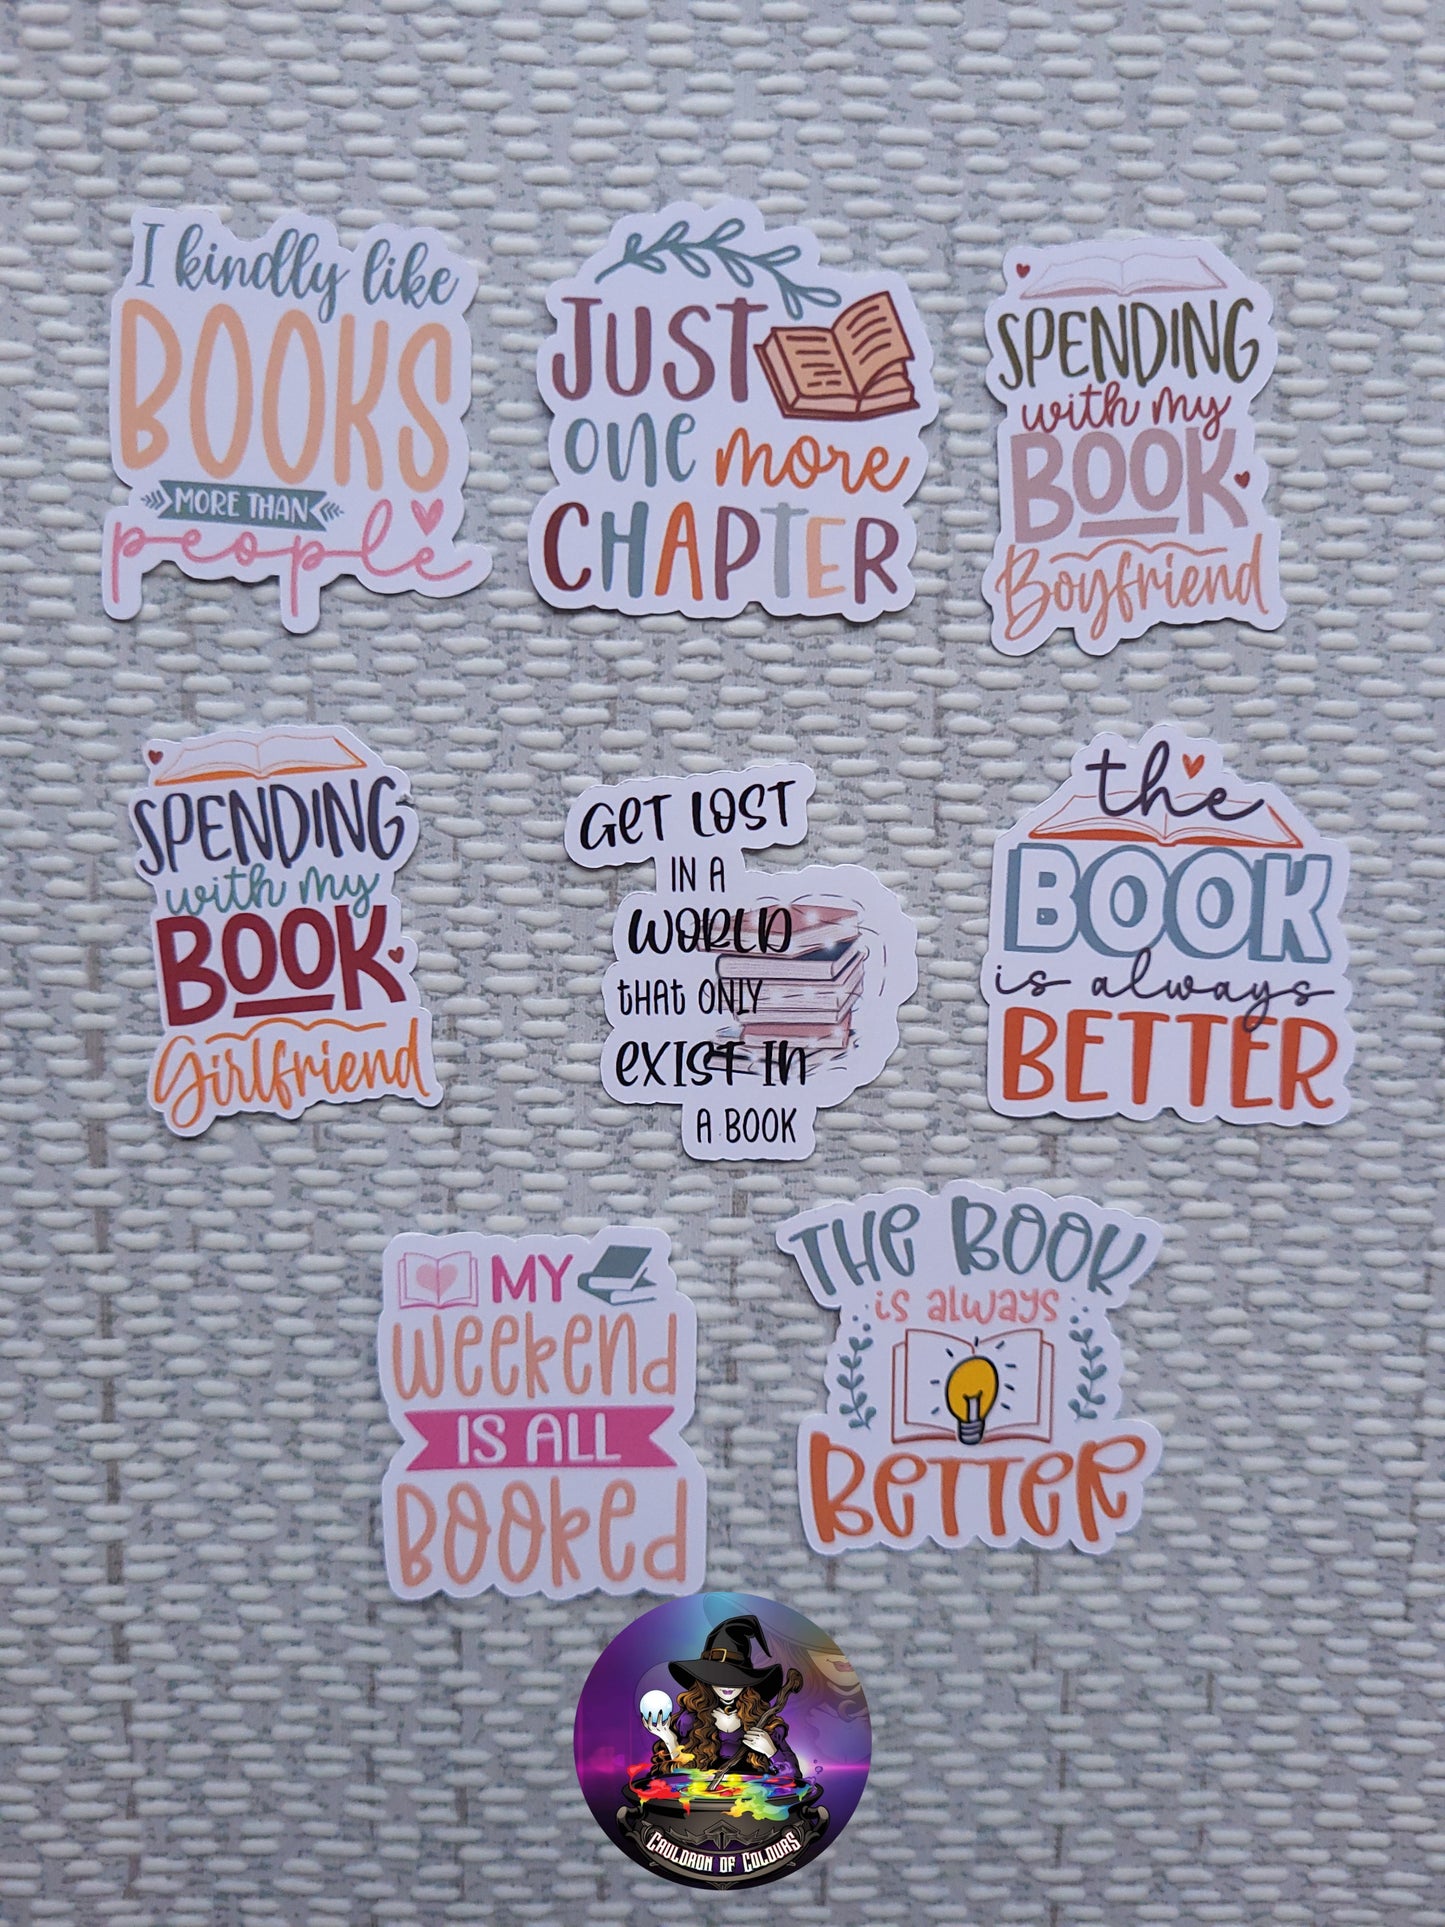 I kindly like
BOOKS
MORE THAN
people
JUST
one more
CHAPTER
SPENDING
with my
BOOK
Boyfriend
SPENDING
with my
BOOK
Girlfriend
GET LOST
IN A
WORLD
THAT ONLY
EXIST IN
A BOOK
the
BOOK
is always
BETTER
MY
WEEKEND
IS ALL
BOOKED
THE BOOK
is always
BETTER
CAULDRON OF COLOURS